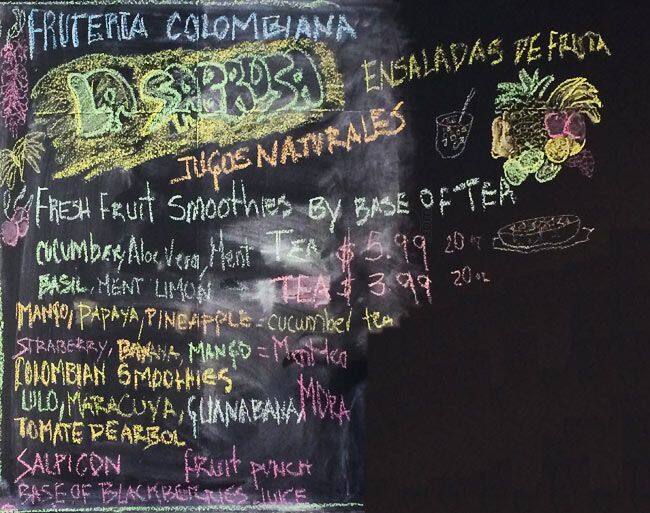 FRUTERIA COLOMBIANA
LA SABROSA
ENSALADAS DE FRUTA
JUGOS NATURALES
FRESH FRUIT SMOOTHIES BY BASE OF TEA
CUCUMBER, Aloe Vera, Ment TEA $5.99 20 oz
BASIL, MENT LIMON - TEA $3.99 20 oz
MANGO, PAPAYA, PINEAPPLE = cucumber tea
STRABERRY, BANANA, MANGO = Ment tea
COLOMBIAN SMOOTHIES
LULO, MARACUYA, GUANABANA, MORA
TOMATE DE ARBOL
SALPICON fruit punch
BASE OF BLACKBERRIES JUICE